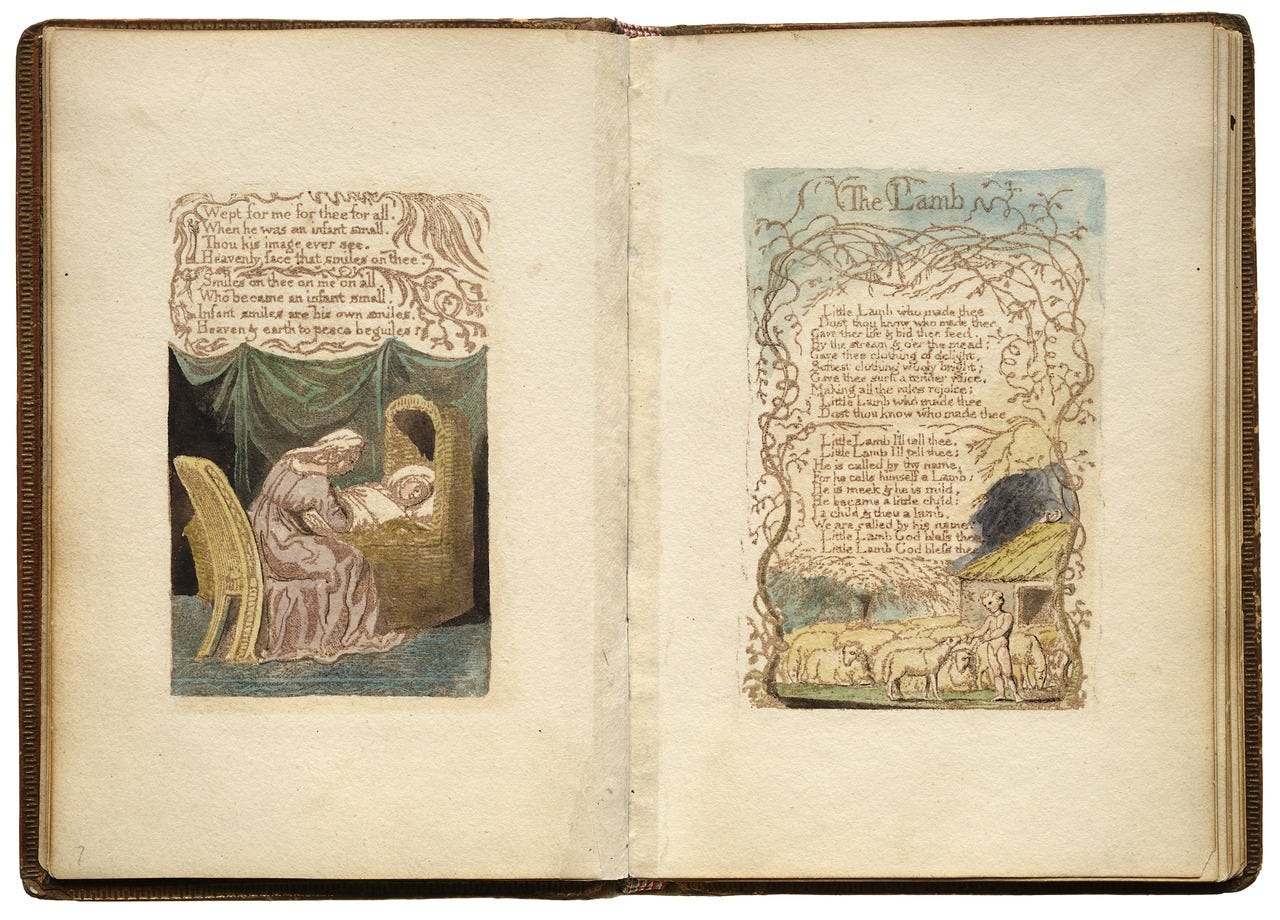 Wept for me for thee for all.
When he was an infant small.
Thou his image ever see.
Heavenly face that smiles on thee.
Smiles on thee on me on all,
Who became an infant small,
Infant smiles are his own smiles.
Heaven & earth to peace beguiles.
7
The Lamb
Little Lamb who made thee
Dost thou know who made thee
Gave thee life & bid thee feed,
By the stream & o'er the mead;
Gave thee clothing of delight,
Softest clothing wooly bright;
Gave thee such a tender voice,
Making all the vales rejoice;
Little Lamb who made thee
Dost thou know who made thee
Little Lamb I'll tell thee,
Little Lamb I'll tell thee;
He is called by thy name,
For he calls himself a Lamb;
He is meek & he is mild,
He became a little child:
I a child & thou a lamb,
We are called by his name.
Little Lamb God bless thee
Little Lamb God bless thee